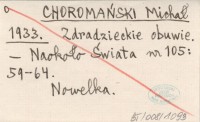 CHOROMAŃSKI Michał
1933. Zdradzieckie obuwie.
— Naokoło Świata nr 105:
59-64.
Nowelka.